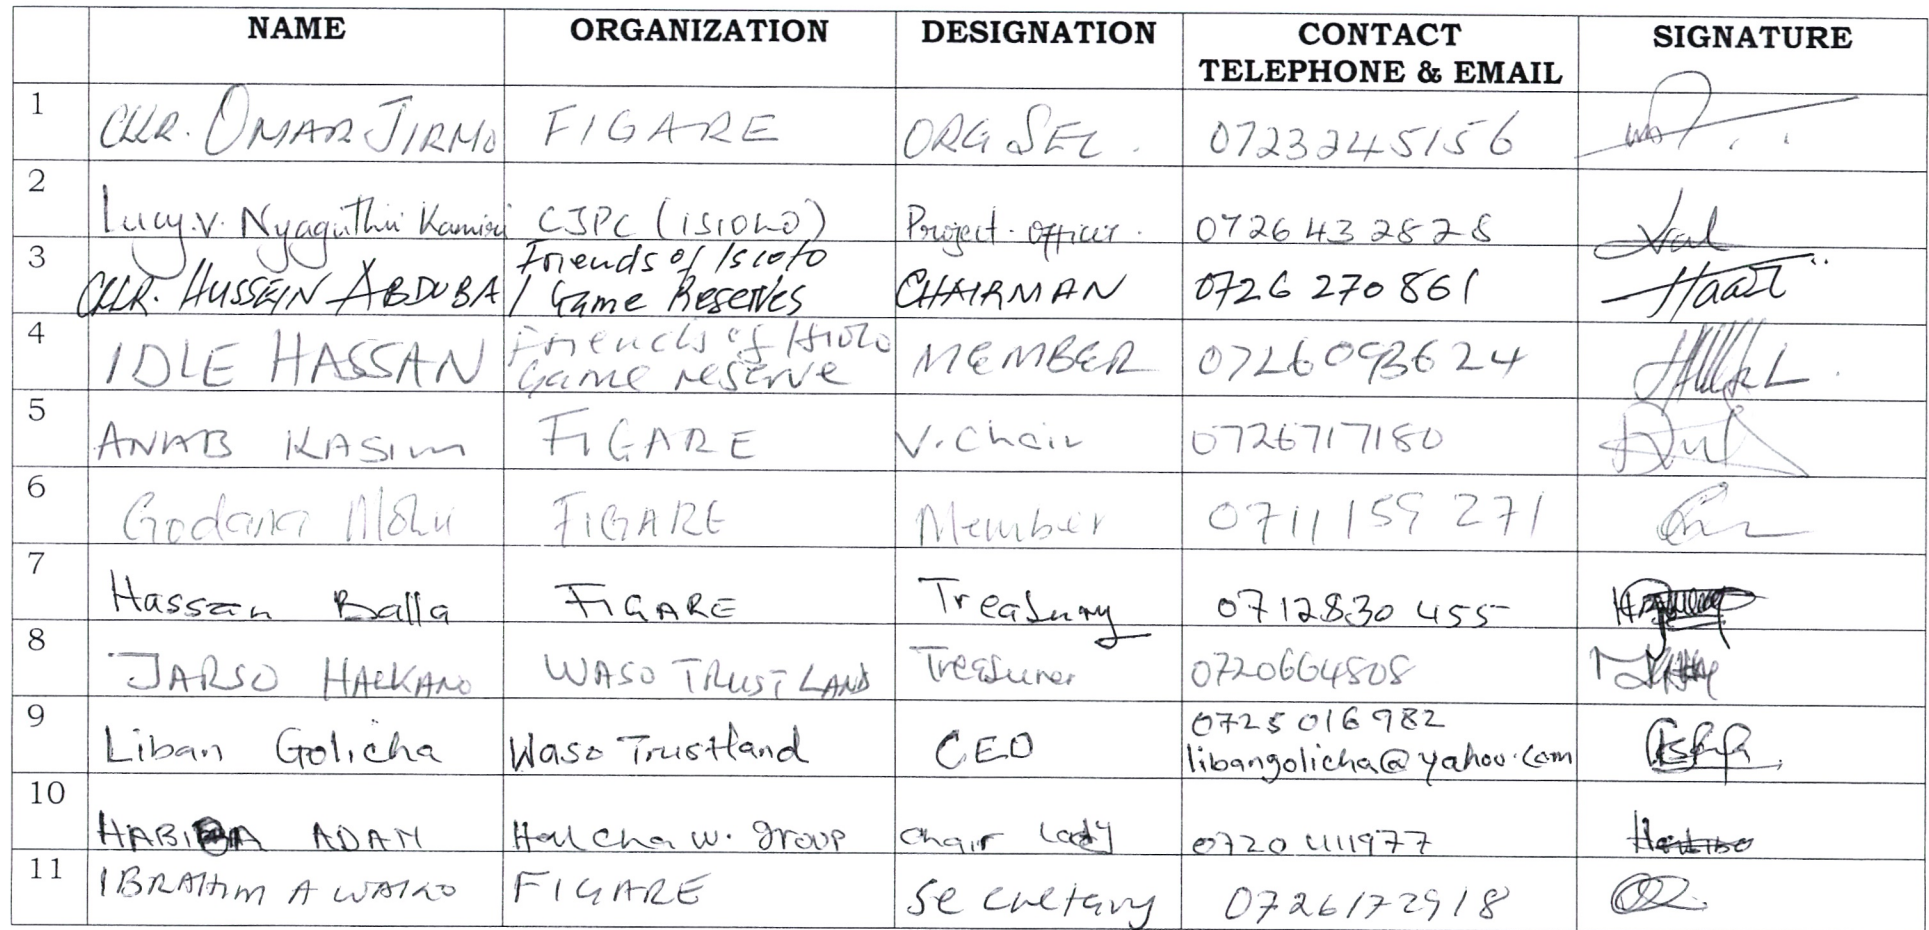 NAME ORGANIZATION DESIGNATION CONTACT TELEPHONE & EMAIL SIGNATURE
1 CLLR. OMAR JIRMO FIGARE ORG SEC. 0723245156
2 Lucy.V. Nyaguthii Kamiri CJPC (ISIOLO) Project. Officer. 0726 432828
3 CLLR. HUSSEIN ABDUBA Friends of Isiolo / Game Reserves CHAIRMAN 0726 270861
4 IDLE HASSAN Friends of Isiolo Game reserve MEMBER 0726093624
5 ANAB KASIM FIGARE V. Chair 0726717180
6 Godana FIGARE Member 0711 159 271
7 Hassan Balla FIGARE Treasury 0712830 455
8 JARSO HALKANO WASO TRUST LAND Treasurer 0720664808
9 Liban Golicha Waso Trustland CEO 0725 016 982 libangolicha@yahoo.com
10 HABIBA ADAN W. group Chair Lady 0720411977
11 IBRAHIM A WAKO FIGARE Secretary 0726172918